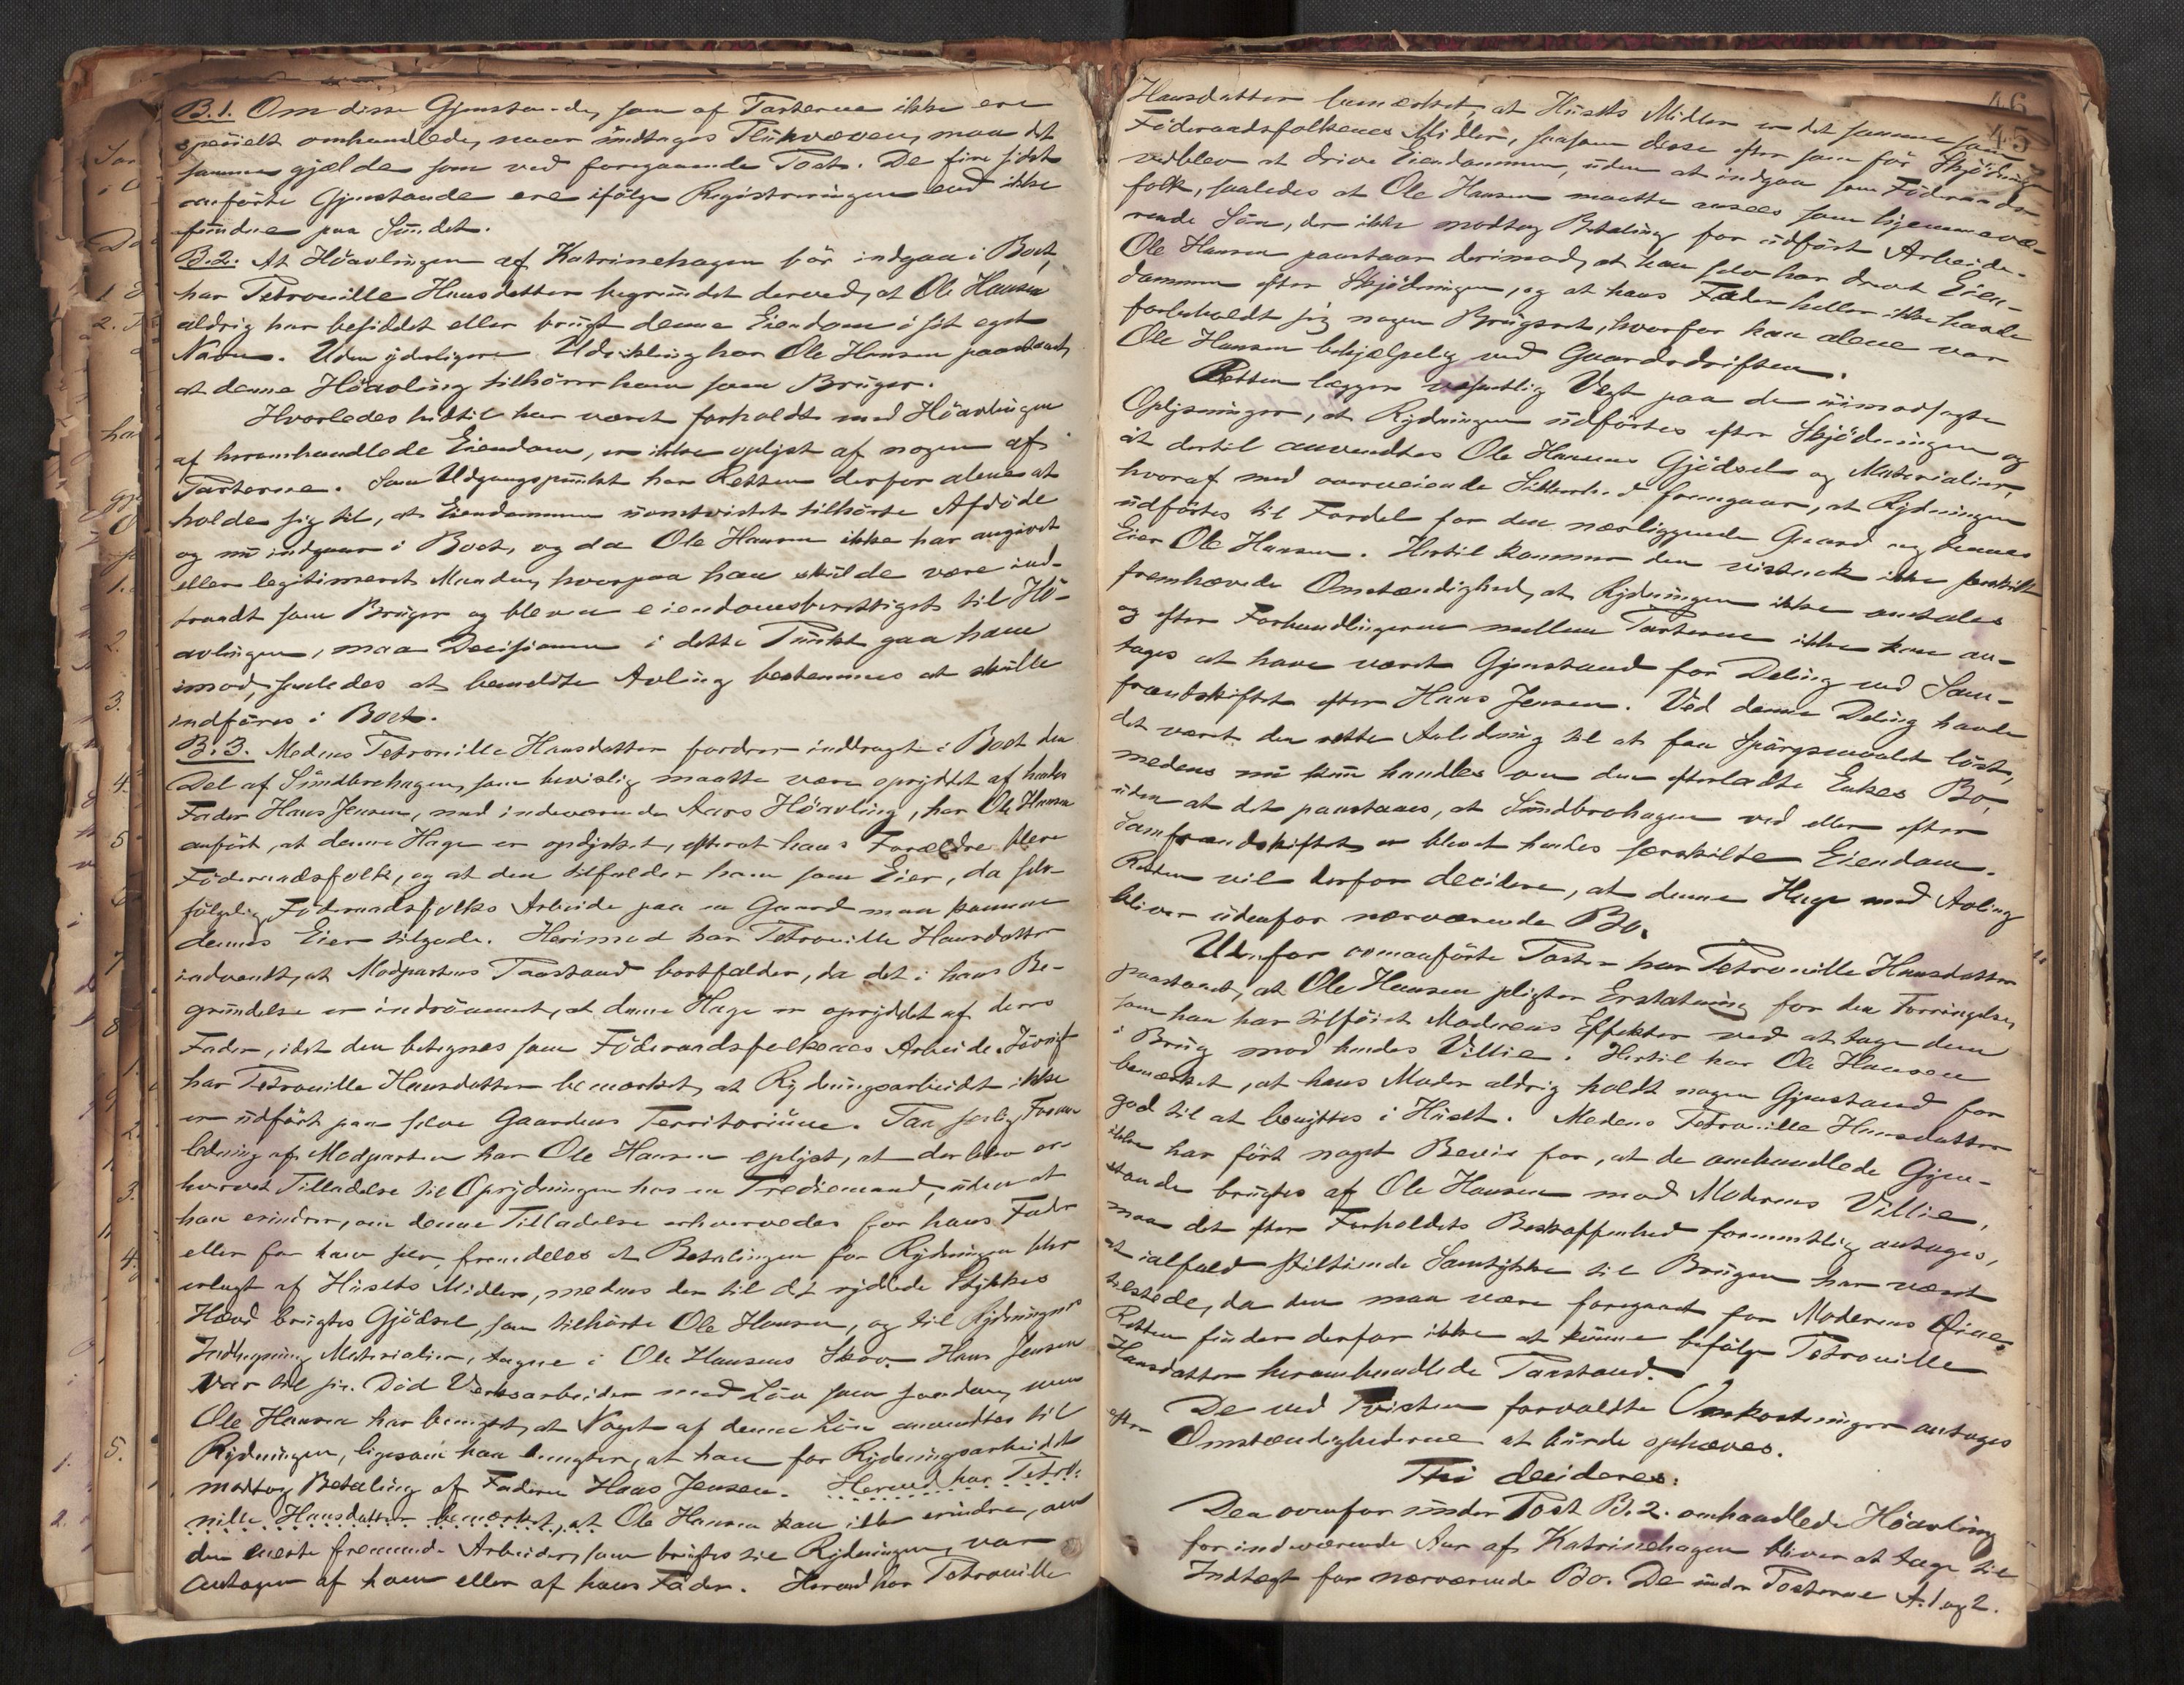 B.1. Om disse Gjenstande, som af Parterne ikke ere
specielt omhandlede, naar undtages Flükvæven, maa det
samme gjælde som ved foregaaende Post. De fire sidst
anførte Gjenstande ere ifølge Registreringen end ikke
fundne paa Sundet.
B.2. At Høavlingen af Katrinehagen bør indgaa i Boet,
har Petronille Hansdatter begrundet derved, at Ole Hansen
aldrig har besiddet eller brugt denne Eiendom i sit eget
Navn. Uden yderligere Udvikling har Ole Hansen paastaaet,
at denne Høavling tilhører ham som Bruger.
Hvorledes hidtil har været forholdt med Høavlingen
af heromhandlede Eiendom, er ikke oplyst af nogen af
Parterne. Som Udgangspunkt har Retten derfor alene at
holde sig til, at Eiendommen uomtvistet tilhørte Afdøde
og nu indgaar i Boet, og da Ole Hansen ikke har angivet
eller legitimeret Maaden, hvorpaa han skulde være ind-
traadt som Bruger og bleven eiendomsberettiget til Hø-
avlingen, maa Decisionen i dette Punkt gaa ham
imod, saaledes at bemeldte Avling bestemmes at skulle
indføres i Boet.
B.3. Medens Petronille Hansdatter fordrer inddraget i Boet den
Del af Sundbrohagen, som bevislig maatte være opryddet af hendes
Fader Hans Jensen, med indeværende Aars Høavling, har Ole Hansen
anført, at denne Hage er opdyrket, efterat hans Forældre bleve
Föderaadsfolk, og at den tilfalder ham som Eier, da selv-
følgelig Föderaadsfolks Arbeide paa en Gaard maa komme
dennes Eier tilgode. Herimod har Petronille Hansdatter
indvendt, at Modpartens Paastand bortfalder, da det i hans Be-
grundelse er indrømmet, at denne Hage er opryddet af deres
Fader, idet den betegnes som Föderaadsfolkenes Arbeide. Iøvrigt
har Petronille Hansdatter bemærket, at Rydningsarbeidet ikke
er udført paa selve Gaardens Territorium. Paa særlig Foran-
ledning af Modparten har Ole Hansen oplyst, at der blev er-
hvervet Tilladelse til Oprydningen hos en Trediemand, uden at
han erindrer, om denne Tilladelse erhvervedes for hans Fader
eller for ham selv, fremdeles at Betalingen for Rydningen blev
erlagt af Husets Midler, medens der til det ryddede Stykkes
Hævd brugtes Gjødsel, som tilhørte Ole Hansen, og til Rydningens
Indhegning Materialier, tagne i Ole Hansens Skov. Hans Jensen
var til sin Død Verksarbeider med Løn som saadan, men
Ole Hansen har benegtet, at Noget af denne Løn anvendtes til
Rydningen, ligesom han benegter, at han for Rydningsarbeidet
modtog Betaling af Faderen Hans Jensen. Herved har Petro-
nille Hansdatter bemærket, at Ole Hansen kan ikke erindre, om
den eneste fremmede Arbeider, som brugtes til Rydningen, var
antagen af ham eller af hans Fader. Herved har Petronille
46
45
Hansdatter bemærket, at Husets Midler er det samme som
Föderaadsfolkenes Midler, saasom disse efter som før Skjødningen
vedblev at drive Eiendommen, uden at indgaa som Föderaads-
folk, saaledes at Ole Hansen maatte ansees som hjemmevæ-
rende Søn, der ikke modtog Betaling for udført Arbeide.
Ole Hansen paastaar derimod, at han selv har drevet Eien-
dommen efter Skjødningen, og at hans Fader heller ikke havde
forbeholdt sig nogen Brugsret, hvorfor han alene var
Ole Hansen behjælpelig ved Gaardsdriften.
Retten lægger væsentlig Vægt paa de uimodsagte
Oplysninger, at Rydningen udførtes efter Skjødningen og
at dertil anvendtes Ole Hansens Gjødsel og Materialier,
hvoraf med overveiende Sikkerhed fremgaar, at Rydningen
udførtes til Fordel for den nærliggende Gaard og dennes
Eier Ole Hansen. Hertil kommer den vistnok ikke særskilt
fremhævede Omstændighed, at Rydningen ikke omtales
og efter Forhandlingerne mellem Parterne ikke kan an-
tages at have været Gjenstand for Deling ved Sam-
frændskiftet efter Hans Jensen. Ved denne Deling havde
det været den rette Anledning til at faa Spørgsmaalet løst,
medens nu kun handles om den efterladte Enkes Bo,
uden at det paastaaes, at Sundbrohagen ved eller efter
Samfrændskiftet er blevet hendes særskilte Eiendom.
Retten vil derfor decidere, at denne Hage med Avling
bliver udenfor nærværende Bo.
Udenfor ovenanførte Poster har Petronille Hansdatter
paastaaet, at Ole Hansen pligter Erstatning for den Forringelse,
som han har tilføiet Moderens Effekter ved at tage dem
i Brug mod hendes Villie. Hertil har Ole Hansen
bemærket, at hans Moder aldrig holdt nogen Gjenstand for
god til at benyttes i Huset. Medens Petronille Hansdatter
ikke har ført noget Bevis for, at de omhandlede Gjen-
stande brugtes af Ole Hansen mod Moderens Villie,
maa det efter Forholdets Beskaffenhed formentlig antages,
at ialfald stiltiende Samtykke til Brugen har været
tilstede, da den maa være foregaaet for Moderens Øine.
Retten finder derfor ikke at kunne bifølge Petronille
Hansdatters heromhandlede Paastand.
De ved Tvisten forvoldte Omkostninger antages
efter Omstændighederne at burde ophæves.
Thi decideres:
Den ovenfor under Post B.2. omhandlede Høavling
for indeværende Aar af Katrinehagen bliver at tage til
Indtægt for nærværende Bo. De under Posterne A.1 og 2.